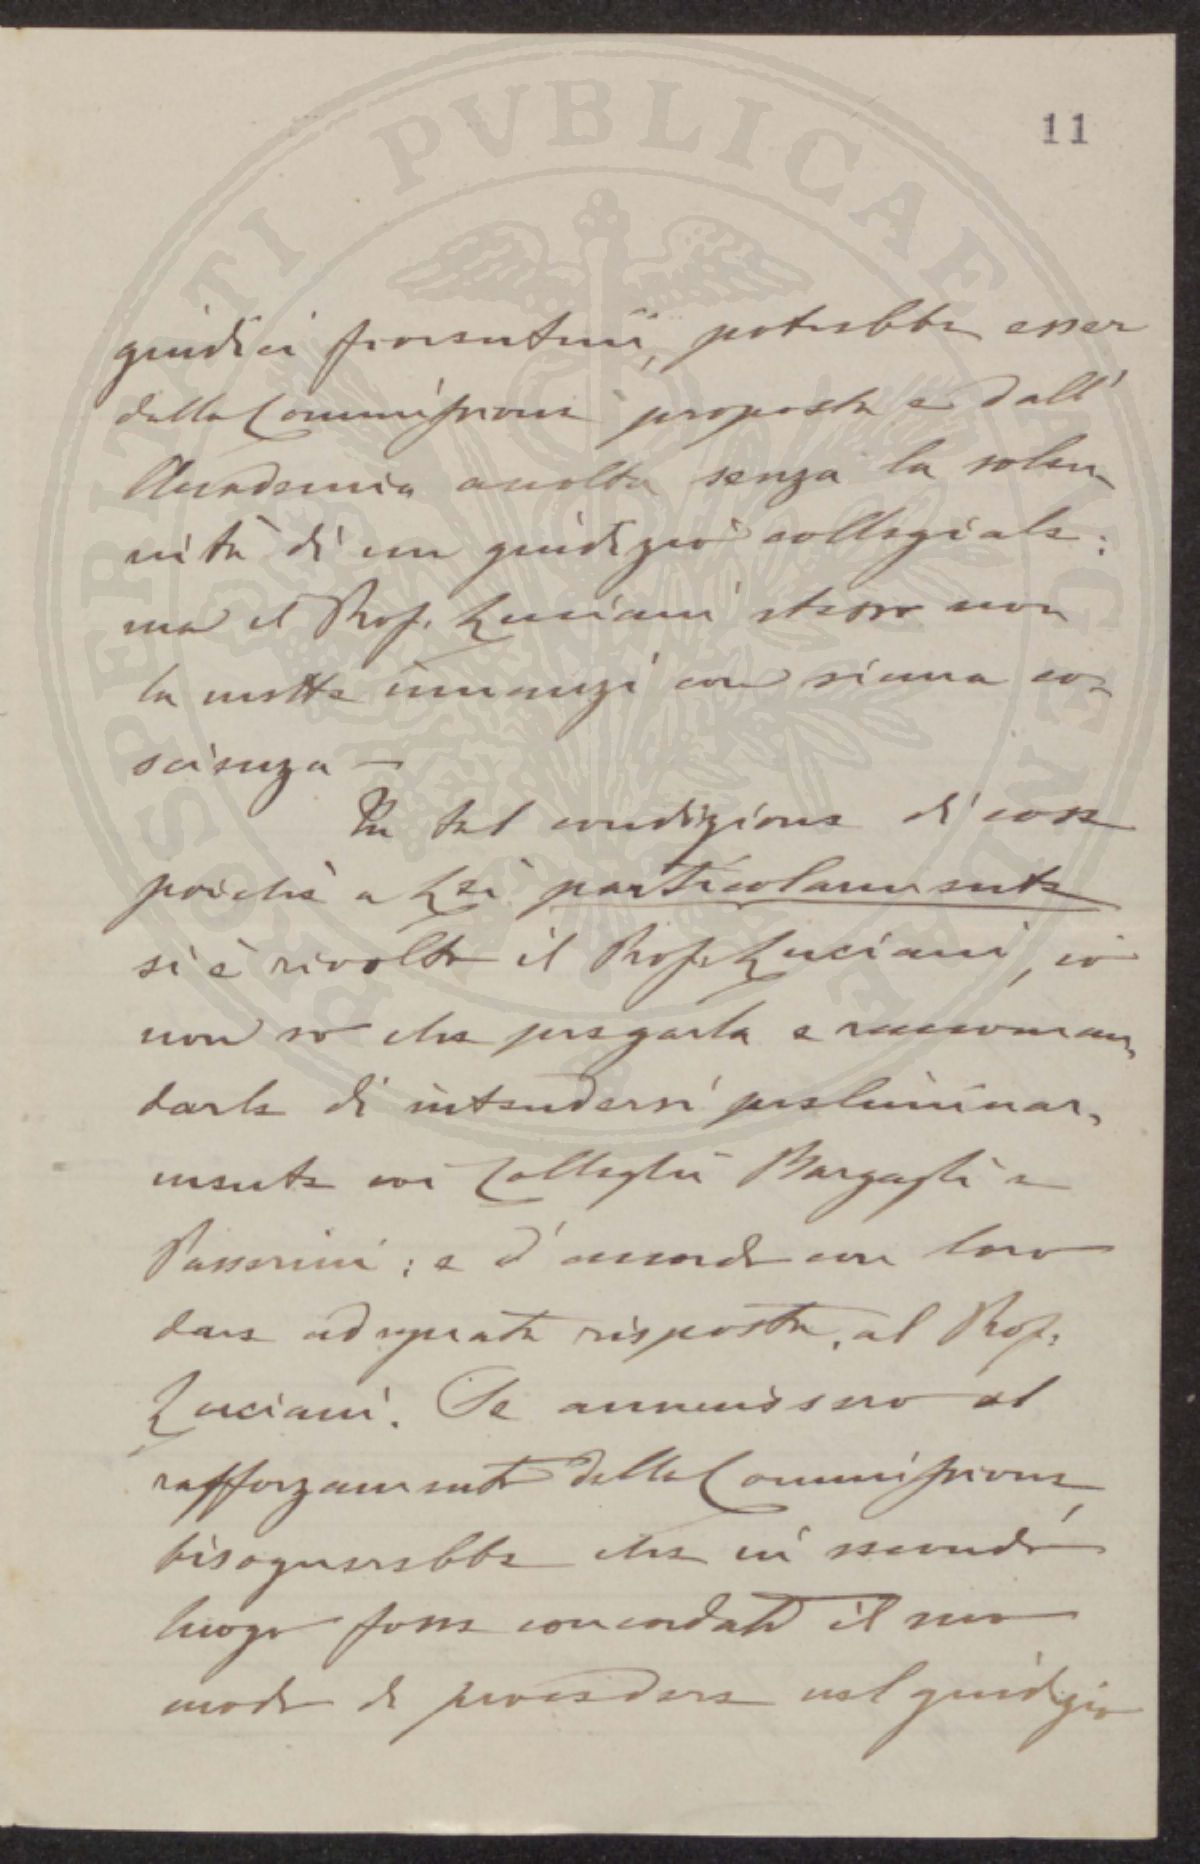 11
giudici fiorentini, potrebbe esser
dalla Commissione proposta e dall'
Accademia accolta senza la solen-
nità di un giudizio collegiale:
ma il Prof. Luciani stesso non
la mette innanzi con sicura co-
scienza –
In tal condizione di cose
poichè a Lei particolarmente
si è rivolto il Prof. Luciani, io
non so che pregarla e raccoman-
darle di intendersi preliminar-
mente coi Colleghi Bargagli e
Passerini: e d'accordo con loro
dare adeguata risposta, al Prof.
Luciani. Se annuissero al
rafforzamento della Commissione,
bisognerebbe che in secondo
luogo fosse concordato il suo
modo di procedere nel giudizio
PROSPERITATI PVBLICAE AVGENDAE